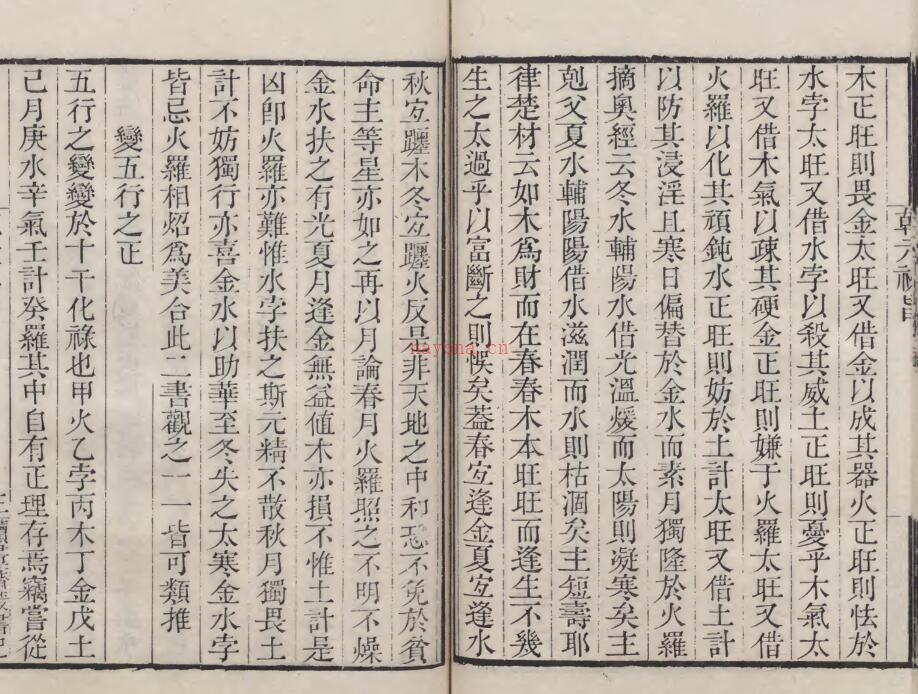 木正旺則畏金太旺又借金以成其器火正旺則怯於
水孛太旺又借水孛以殺其威土正旺則憂乎木氣太
旺又借木氣以疎其硬金正旺則嫌于火羅太旺又借
火羅以化其頑鈍水正旺則妨於土計太旺又借土計
以防其浸淫且寒日偏替於金水而素月獨隆於火羅
摘奧經云冬水輔陽水借光溫煖而太陽則凝寒矣主
剋父夏水輔陽陽借水滋潤而水則枯涸矣主短壽耶
律楚材云如木爲財而在春春木本旺旺而逢生不幾
生之太過乎以富斷之則悞矣葢春宐逢金夏宐逢水
秋宐躔木冬宐躔火反是非天地之中和恐不免於貧
命主等星亦如之再以月論春月火羅照之不明不燥
金水扶之有光夏月逢金無益值木亦損不惟土計是
凶卽火羅亦難惟水孛扶之斯元精不散秋月獨畏土
計不妨獨行亦喜金水以助華至冬失之太寒金水孛
皆忌火羅相炤爲美合此二書觀之一一皆可類推
變五行之正
五行之變變於十干化祿也甲火乙孛丙木丁金戊土
己月庚水辛氣壬計癸羅其中自有正理存焉竊嘗從
nayona.cn